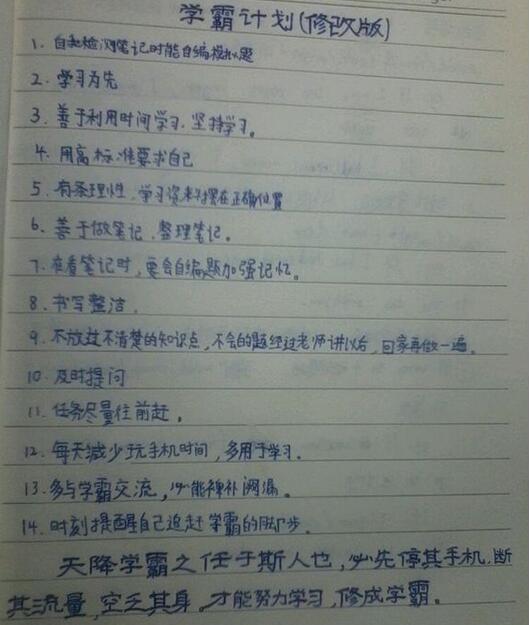 学霸计划(修改版)
1. 自我检测笔记时能自编模拟题
2. 学习为先
3. 善于利用时间学习.坚持学习。
4. 用高标准要求自己
5. 有条理性,学习资料摆在正确位置
6. 善于做笔记,整理笔记。
7. 在看笔记时,要会自编题加强记忆。
8. 书写整洁.
9. 不放过不清楚的知识点,不会的题经过老师讲以后,回家再做一遍。
10. 及时提问
11. 任务尽量往前赶。
12. 每天减少玩手机时间,多用于学习.
13. 多与学霸交流,必能裨补阙漏。
14. 时刻提醒自己追赶学霸的脚步.
天降学霸之任于斯人也,必先停其手机,断
其流量,空乏其身。才能努力学习,修成学霸。